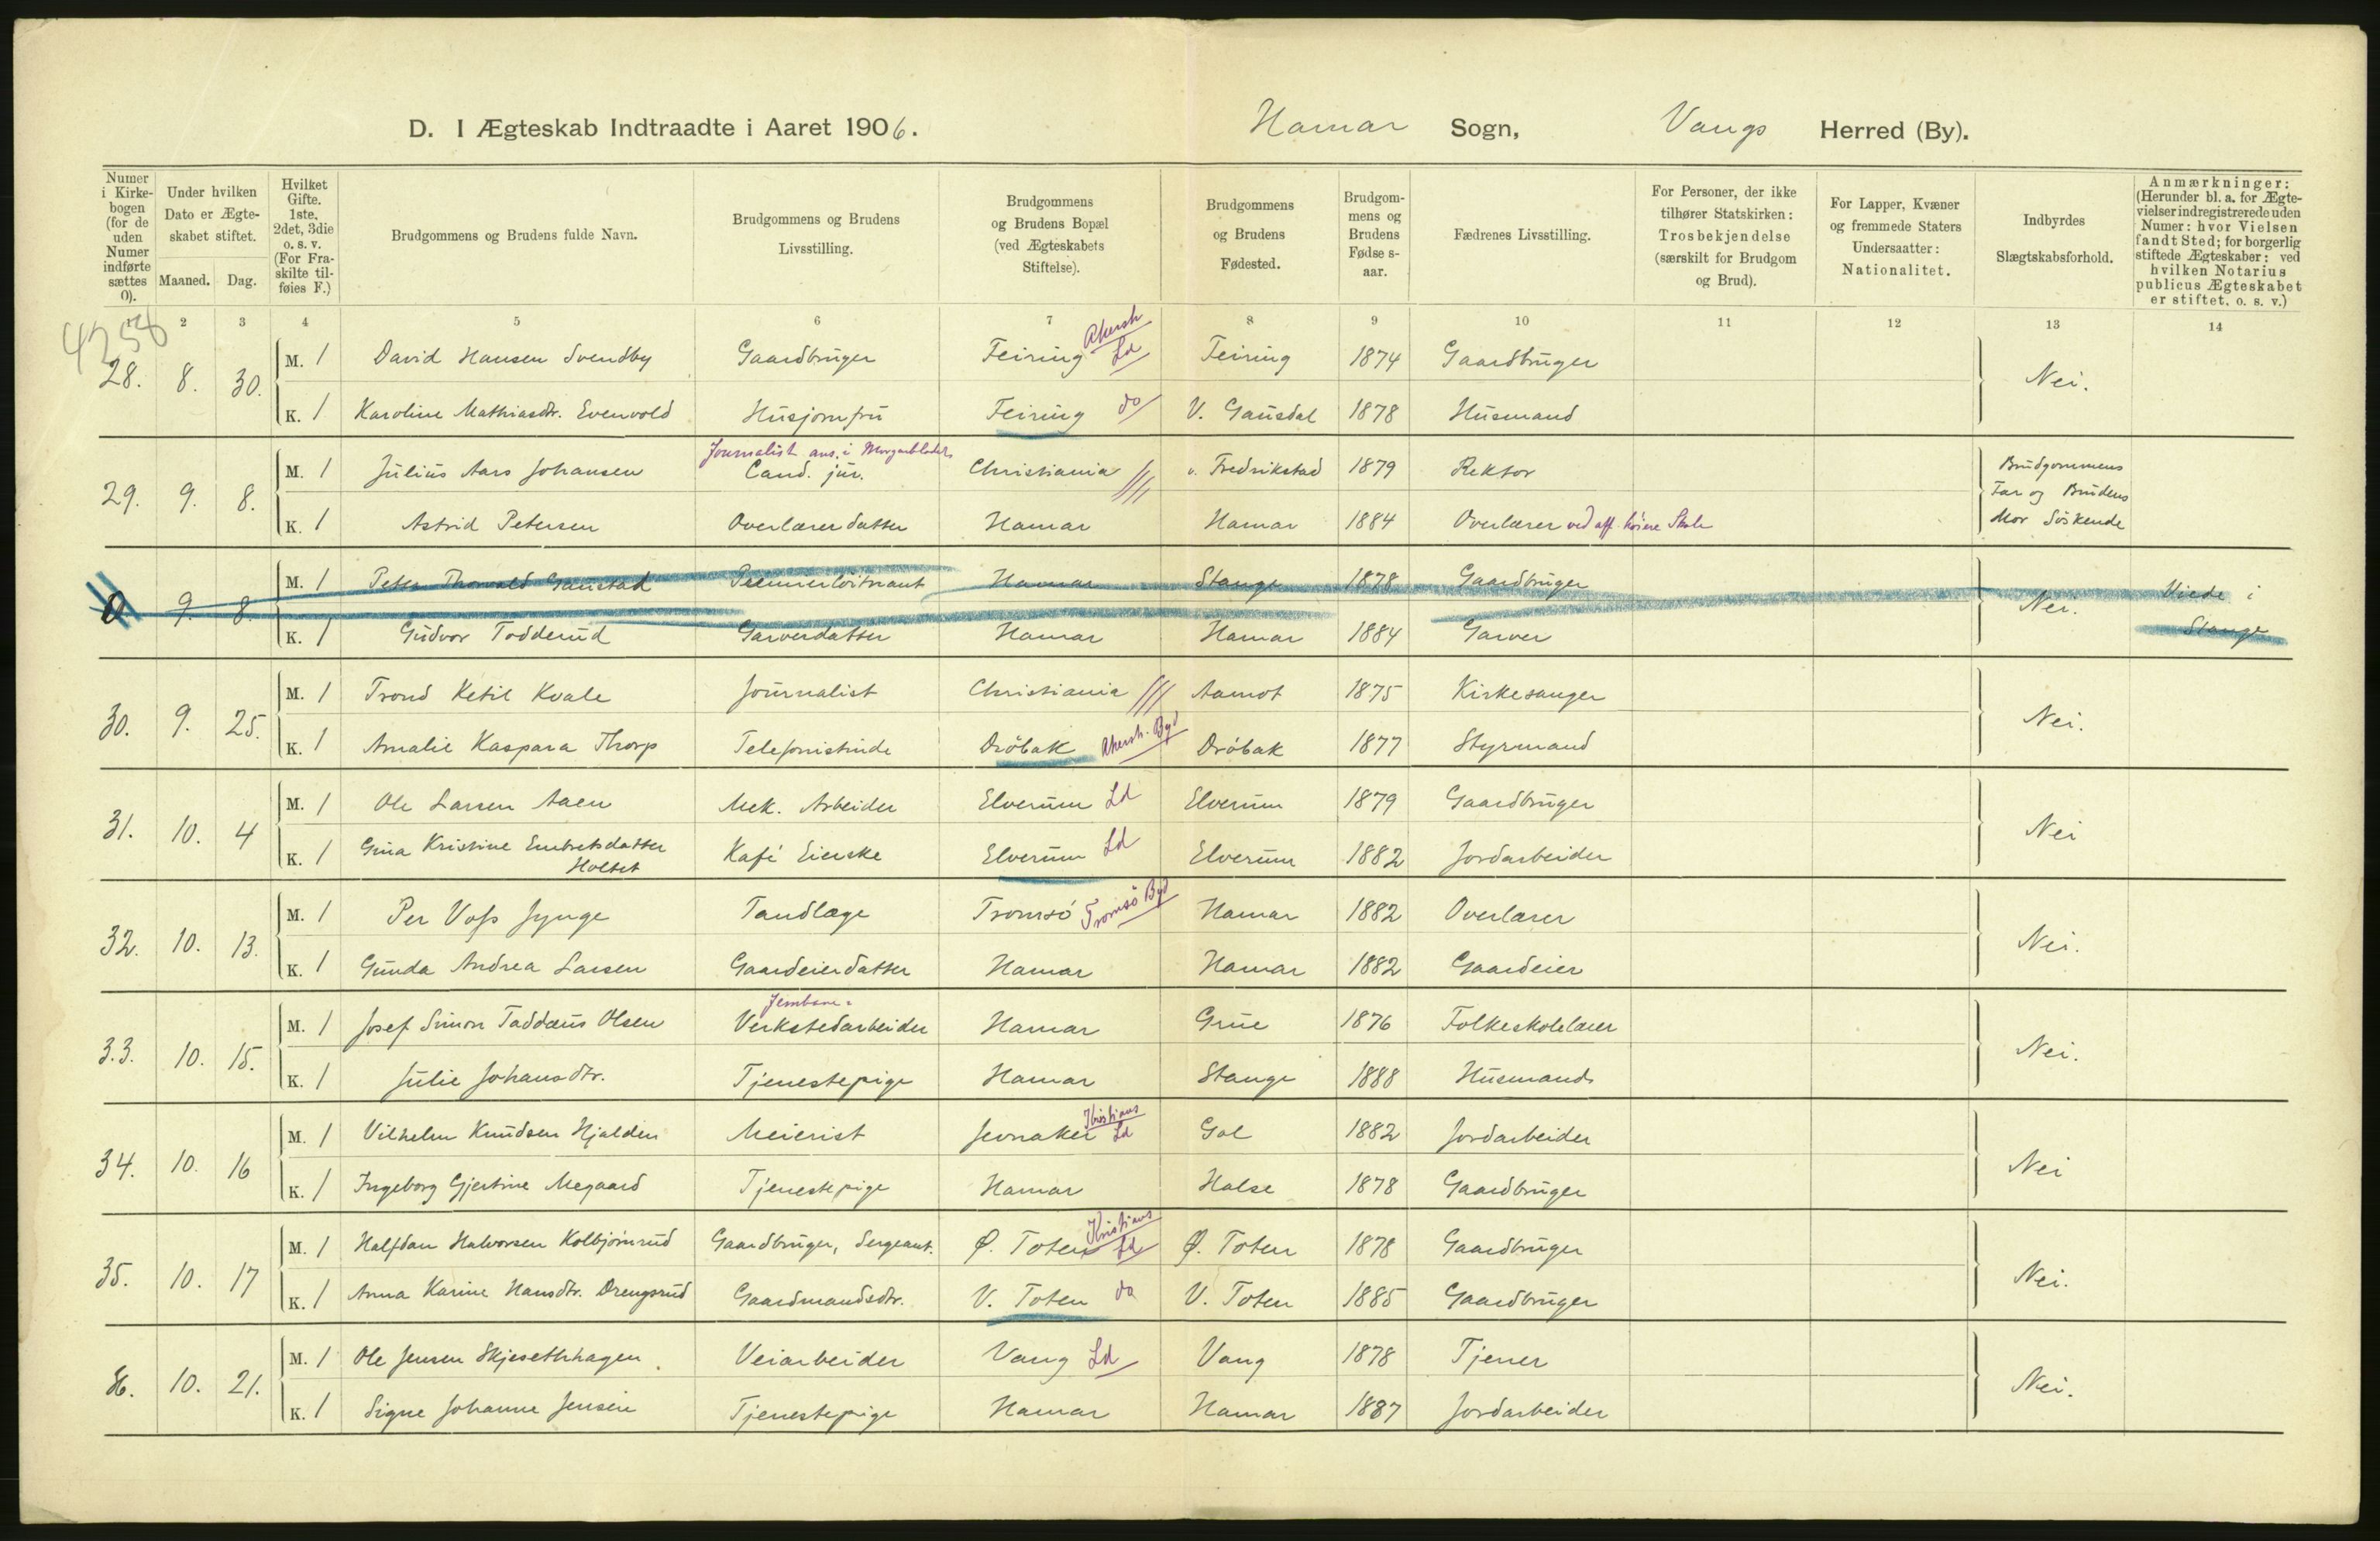 D. I Ægteskab Indtraadte i Aaret 1906. Hamar Sogn, Vangs Herred (By).
Numer i Kirkebogen (for de uden Numer indførte sættes 0).
Under hvilken Dato er Ægteskabet stiftet.
Maaned. Dag.
Hvilket Gifte. 1ste, 2det, 3die o. s. v. (For Fraskilte tilføies F.)
Brudgommens og Brudens fulde Navn.
Brudgommens og Brudens Livsstilling.
Brudgommens og Brudens Bopæl (ved Ægteskabets Stiftelse).
Brudgommens og Brudens Fødested.
Brudgommens og Brudens Fødselsaar.
Fædrenes Livsstilling.
For Personer, der ikke tilhører Statskirken: Trosbekjendelse (særskilt for Brudgom og Brud).
For Lapper, Kvæner og fremmede Staters Undersaatter: Nationalitet.
Indbyrdes Slægtskabsforhold.
Anmærkninger: (Herunder bl. a. for Ægtevielser indregistrerede uden Numer: hvor Vielsen fandt Sted; for borgerlig stiftede Ægteskaber: ved hvilken Notarius publicus Ægteskabet er stiftet, o. s. v.)
1 2 3 4 5 6 7 8 9 10 11 12 13 14
4258
28. 8. 30. M. 1 David Hansen Svendby Gaardbruger Feiring Akersh Ld Feiring 1874 Gaardbruger Nei.
K. 1 Karoline Mathiasdtr. Evenvold Husjomfru Feiring do V. Gausdal 1878 Husmand
Journalist ans. i Morgenbladet
29. 9. 8. M. 1 Julius Aars Johansen Cand. jur. Christiania Fredrikstad 1879 Rektor Brudgommens Far og Brudens Mor Söskende
K. 1 Astrid Petersen Overlærerdatter Hamar Hamar 1884 Overlærer ved off. höiere Skole
0 9. 8. M. 1 Peter Thorvald Gaustad Premierlöitnant Hamar Stange 1878 Gaardbruger Nei. Viede i Stange
K. 1 Gudvor Todderud Garverdatter Hamar Hamar 1884 Garver
30. 9. 25. M. 1 Trond Ketil Kvale Journalist Christiania Aamot 1875 Kirkesanger Nei.
K. 1 Amalie Kaspara Thorp Telefonistinde Dröbak Akersh. Byd Dröbak 1877 Styrmand
31. 10. 4 M. 1 Ole Larsen Aaen Mek. Arbeider Elverum Ld Elverum 1879 Gaardbruger Nei
K. 1 Gina Kristine Embretsdatter Holtet Kafé Eierske Elverum Ld Elverum 1882 Jordarbeider
32. 10. 13. M. 1 Per Voss Jynge Tandlæge Tromsö Tromsö Byd Hamar 1882 Overlærer Nei.
K. 1 Gunda Andrea Larsen Gaardeierdatter Hamar Hamar 1882 Gaardeier
Jernbane-
33. 10. 15. M. 1 Josef Simon Taddæus Olsen Verkstedarbeider Hamar Grue 1876 Folkeskolelærer Nei.
K. 1 Julie Johansdtr. Tjenestepige Hamar Stange 1888 Husmand
34. 10. 16 M. 1 Vilhelm Knudsen Hjalden Meierist Jevnaker Kristians Ld Gol 1882 Jordarbeider Nei
K. 1 Ingeborg Gjertine Megaard Tjenestepige Hamar Halse 1878 Gaardbruger
35. 10. 17 M. 1 Halfdan Halvorsen Kolbjörnrud Gaardbruger, Sergeant. Ø. Toten Kristians Ld Ø. Toten 1878 Gaardbruger Nei.
K. 1 Anna Karine Hansdtr. Drengsrud Gaardmandsdtr. V. Toten do V. Toten 1885 Gaardbruger
36. 10. 21. M. 1 Ole Jensen Skjesethhagen Veiarbeider Vang Ld Vang 1878 Tjener Nei.
K. 1 Signe Johanne Jensen Tjenestepige Hamar Hamar 1887 Jordarbeider